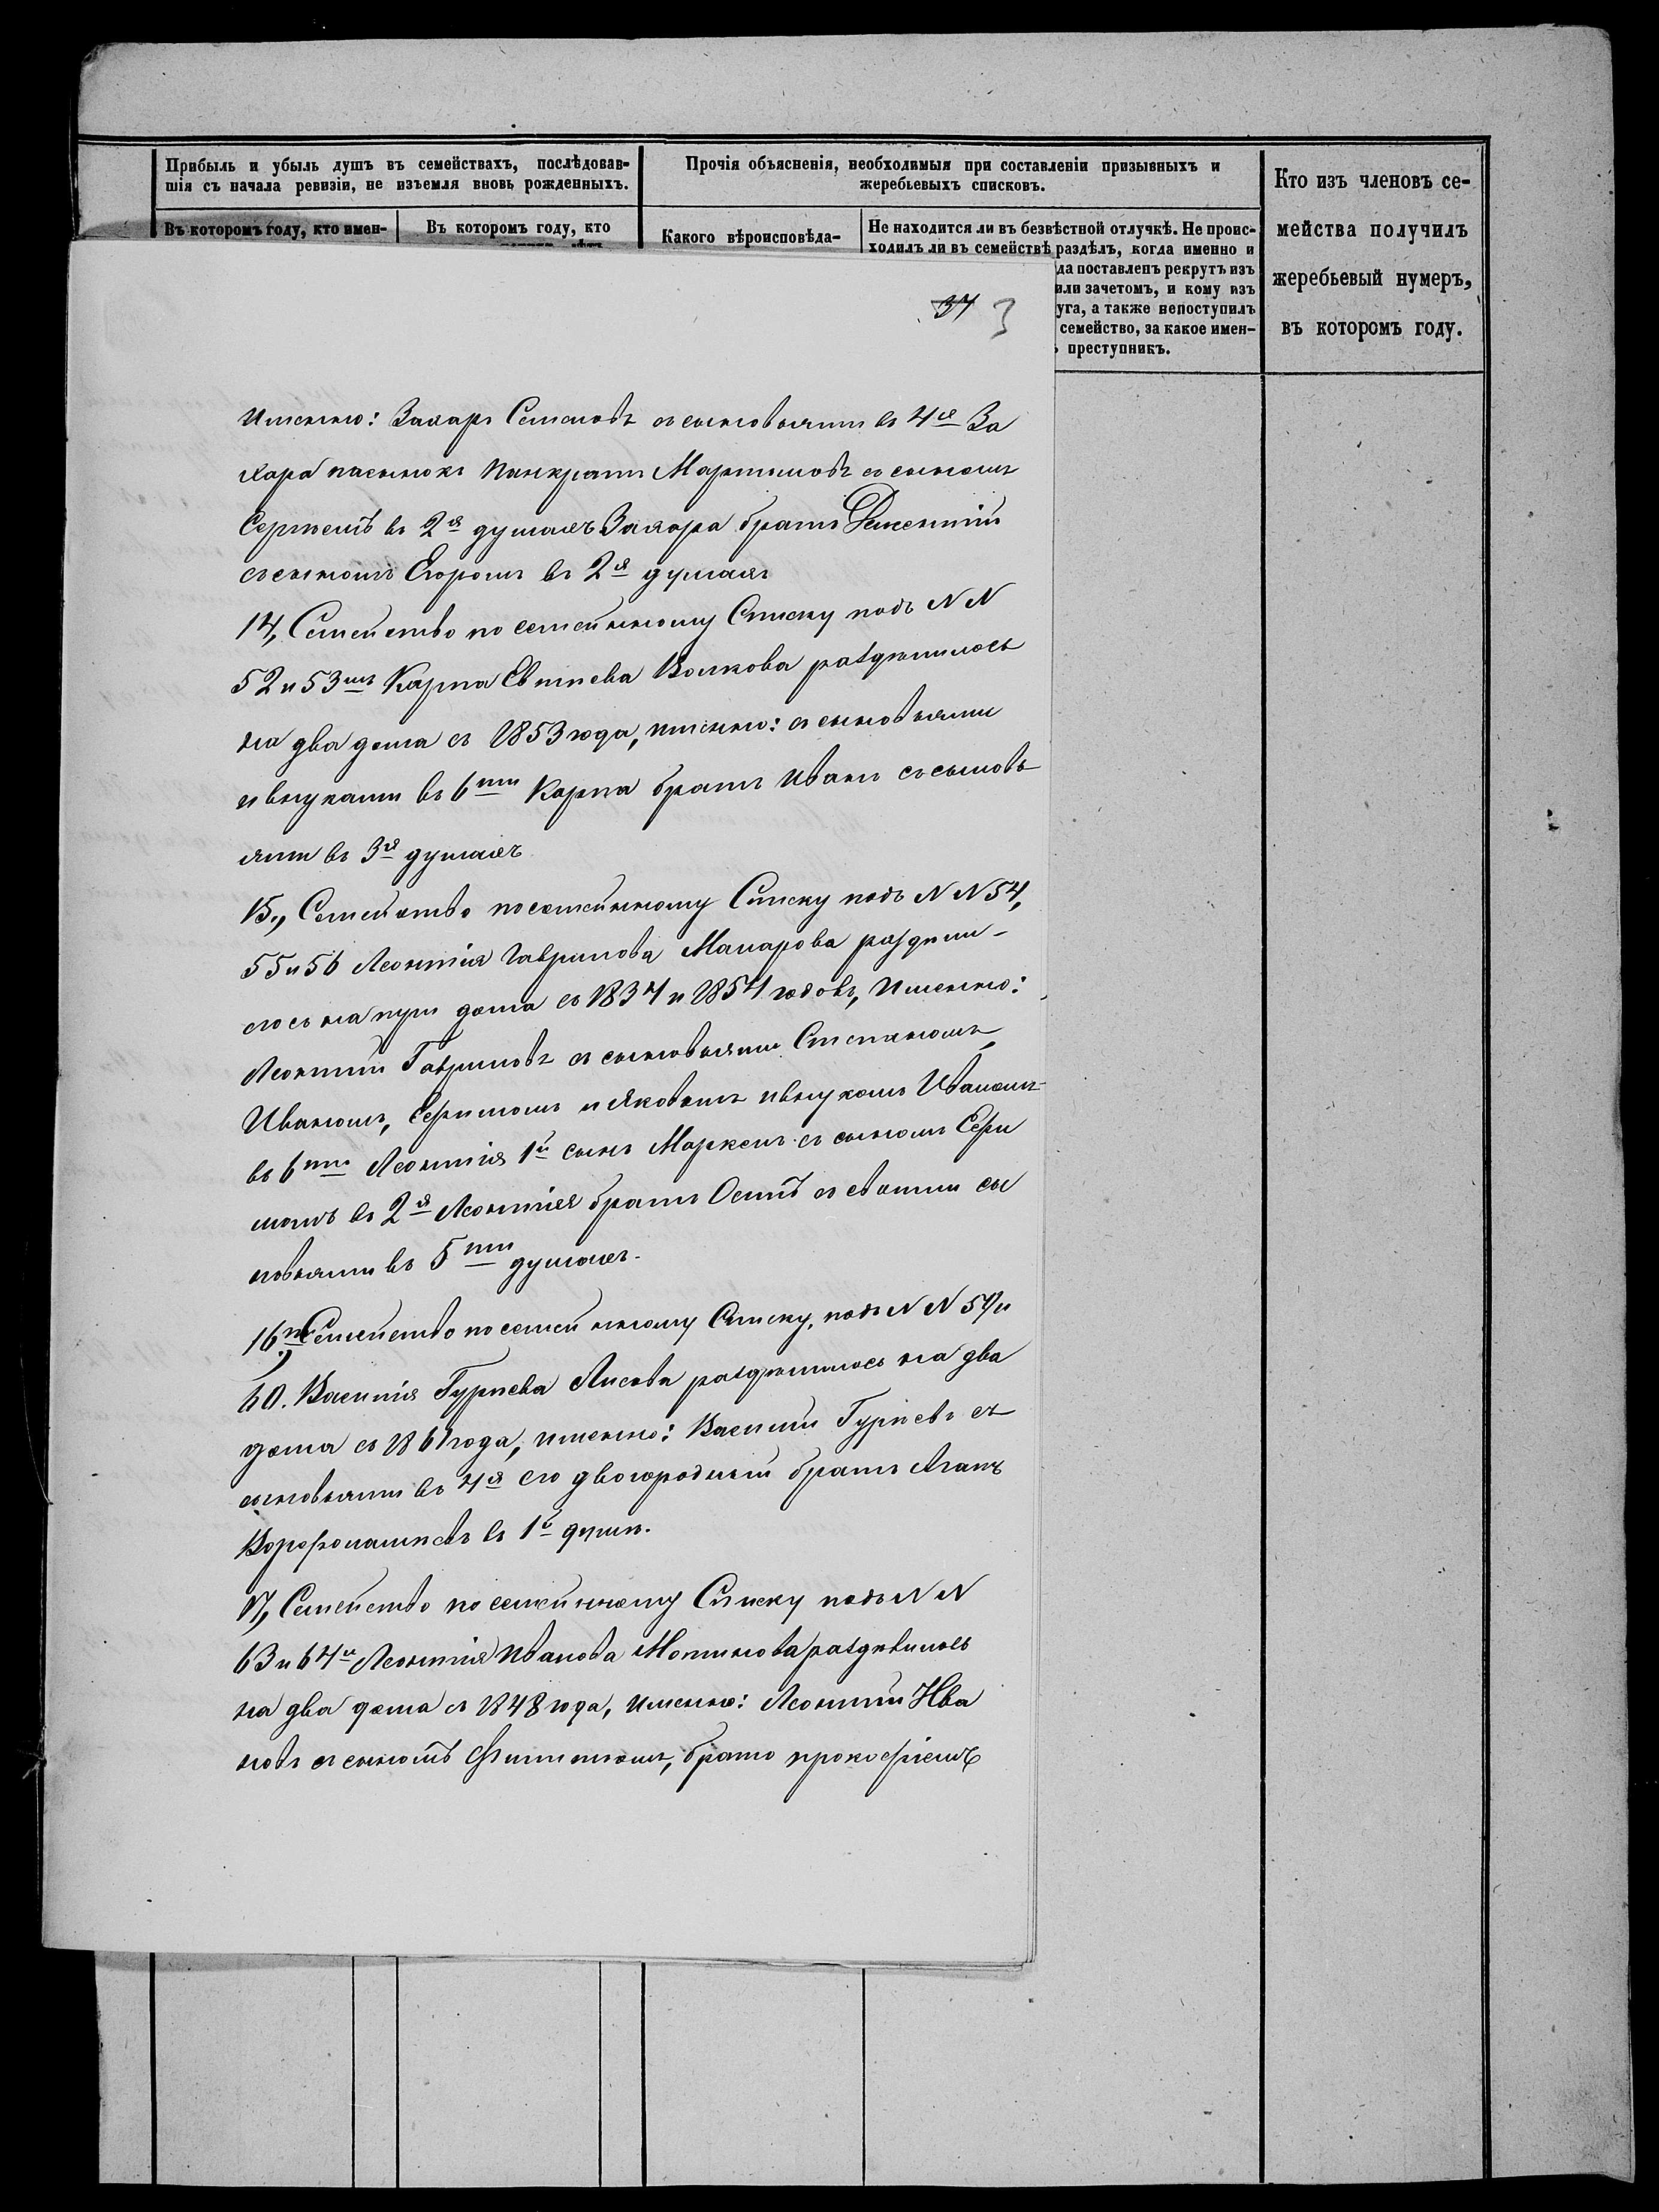 Прибыль и убыль душъ въ семействахъ, послѣдовав-
шія съ начала ревизіи, не изъемля вновь рожденныхъ.
Въ которомъ году, кто имен-
Въ котором году, кто
Прочія объясненія, необходимыя при составленіи призывныхъ и
жеребьевыхъ списковъ.
Какого вѣроисповѣда-
Не находится ли въ безвѣстной отлучкѣ. Не проис-
ходилъ ли въ семействѣ раздѣлъ, когда именно и
да поставленъ рекрутъ изъ
или зачетомъ, и кому изъ
уга, а также непоступилъ
семейство, за какое имен-
ъ преступникъ.
Кто изъ членовъ се-
мейства получилъ
жеребьевый нумеръ,
въ которомъ году.
37 3
Именно: Захаръ Семеновъ съ сыновьями въ 4хъ За
хара пасынокъ Панкратъ Мартыновъ съ сыномъ
Сергеемъ въ 2х душахъ Захара братъ Дементій
съ сыномъ Егоромъ въ 2х душахъ
14, Семейство по семейному Списку подъ N N
52 и 53мъ Карпа Евтиева Волкова раздѣлилось
на два дома съ 1853 года, именно: съ сыновьями
и внуками въ 6ти Карпа братъ Иванъ съ сыновь
ями въ 3х душахъ
15, Семейство по семейному Списку подъ N N 54,
55 и 56 Леонтія Гаврилова Макарова раздели-
лось на три дома съ 1834 и 1854 годовъ, Именно:
Леонтій Гавриловъ съ сыновьями Степаномъ,
Иваномъ, Ефимомъ и Яковомъ и внукомъ Иваномъ
въ 6ти Леонтія 1й сынъ Маркелъ съ сыномъ Ефи
момъ въ 2х Леонтія братъ Осипъ съ своими сы
новьями въ 5ти душахъ.
16, Семейство по семейному Списку, подъ N N 59 и
60. Василія Гуриева Лисова раздѣлилось на два
дома съ 1861 года, именно: Василій Гуриевъ съ
сыновьями въ 4х его двоюродный братъ Агапъ
въ 1й душѣ.
17, Семейство по семейному Списку подъ N N
63 и 64й Леонтія Иванова раздѣлилось
на два дома съ 1848 года, именно: Леонтій Ива
новъ съ сыномъ Филиппомъ, брато прокофіемъ